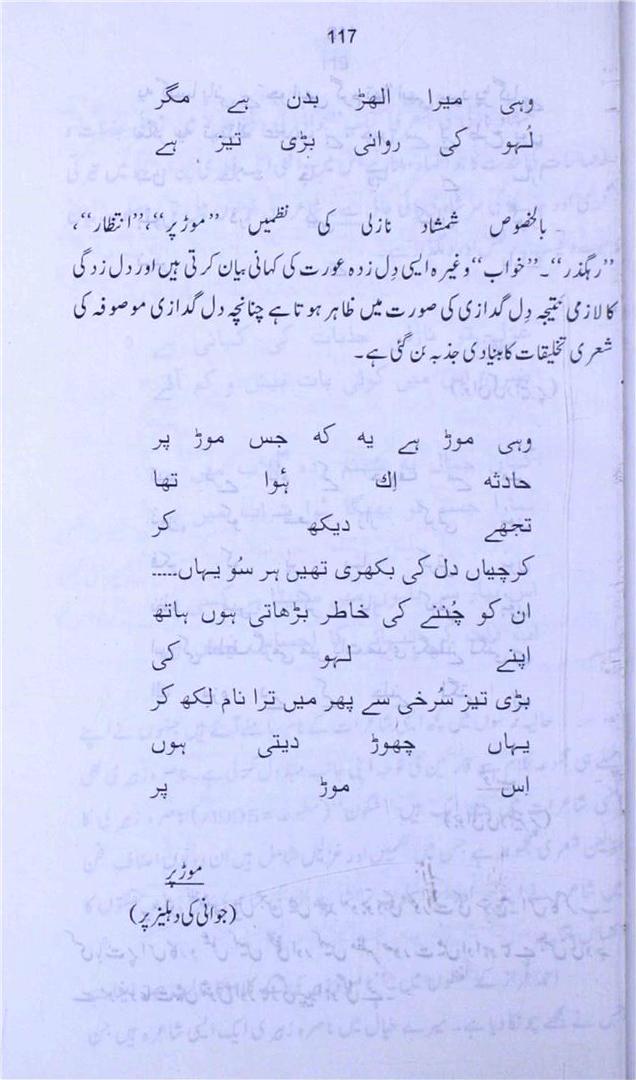 117
وہی میرا الھڑ بدن ہے مگر
لُہو کی روانی بڑی تیز ہے
بالخصوص شمشاد نازلی کی نظمیں ’’موڑ پر‘‘، ’’انتظار‘‘،
’’رہگذر‘‘۔ ’’خواب‘‘ وغیرہ ایسی دِل زدہ عورت کی کہانی بیان کرتی ہیں اور دل زدگی
کا لازمی نتیجہ دِل گدازی کی صورت میں ظاہر ہوتا ہے چنانچہ دل گدازی موصوفہ کی
شعری تخلیقات کا بنیادی جذبہ بن گئی ہے۔
وہی موڑ ہے یہ کہ جس موڑ پر
حادثہ اِک ہُوا تھا
تجھے دیکھ کر
کرچیاں دل کی بکھری تھیں ہر سُو یہاں.....
ان کو چُننے کی خاطر بڑھاتی ہوں ہاتھ
اپنے لہو کی
بڑی تیز سُرخی سے پھر میں ترا نام لکھ کر
یہاں چھوڑ دیتی ہوں
اس موڑ پر
موڑ پر
(جوانی کی دہلیز پر)